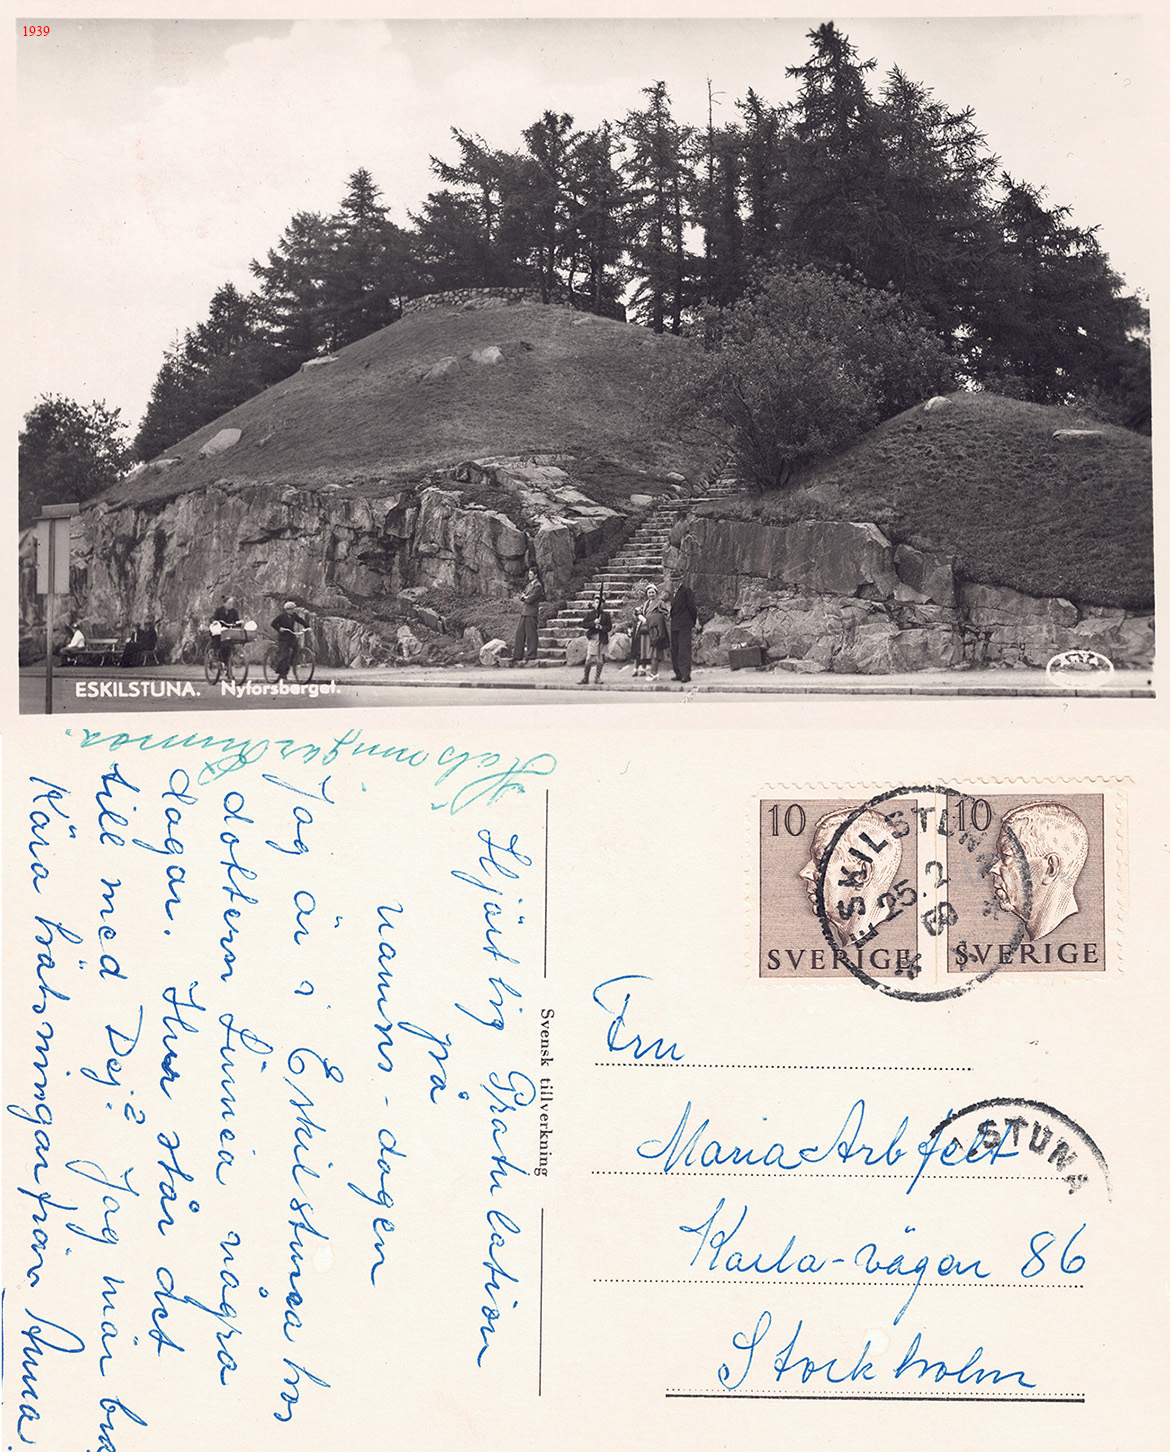 1939
ESKILSTUNA. Nyforsberget.
Hälsningar Linnea.
Hjärtlig Gratulation
på
namns-dagen
Jag är i Eskilstuna hos
dottern Linnea några
dagar. Hur står det
till med Dej? Jag mår bra
Kära hälsningar från Anna.
Svensk tillverkning
10
SVERIGE
10
SVERIGE
ESKILSTUNA
25.2
STUNA
Fru
Maria Arbfelt
Karla-vägen 86
Stockholm